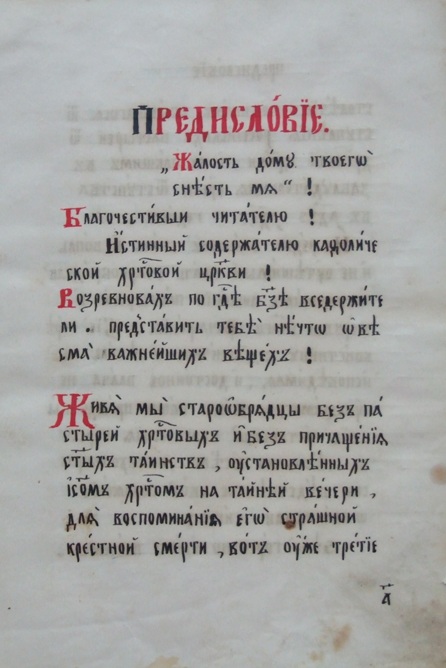 Предисло́вїе.
„Жа́лость до́му твоегѡ̀
снѣ́сть мѧ̀“ !
Благочести́выи чита́телю !
И́стинный содержа́телю каѳоли́че
ской хрⷭ҇то́вой цр҃кви !
Возревнова́хъ по гдⷭ҇ѣ бз҃ѣ вседержи́те
ли . предста́вить тебѣ̀ нѣ́что ѡ҆ вѣ
сма̀ важнѣ́йшихъ вѣще́хъ !
Живѧ̀ мы̀ староѡбрѧ́дцы безъ па́
стырей хрⷭ҇то́выхъ и҆ безъ прича́щенїѧ
ст҃ы́хъ та́инствъ , оу҆стано́вле́нныхъ
і҆с҃омъ хрⷭ҇то́мъ на та́йнѣй ве́чери ,
для̀ воспомина́нїѧ є҆гѡ̀ стра́шной
кре́стной сме́рти , во́тъ оу҆же́ тре́тїе
а҃